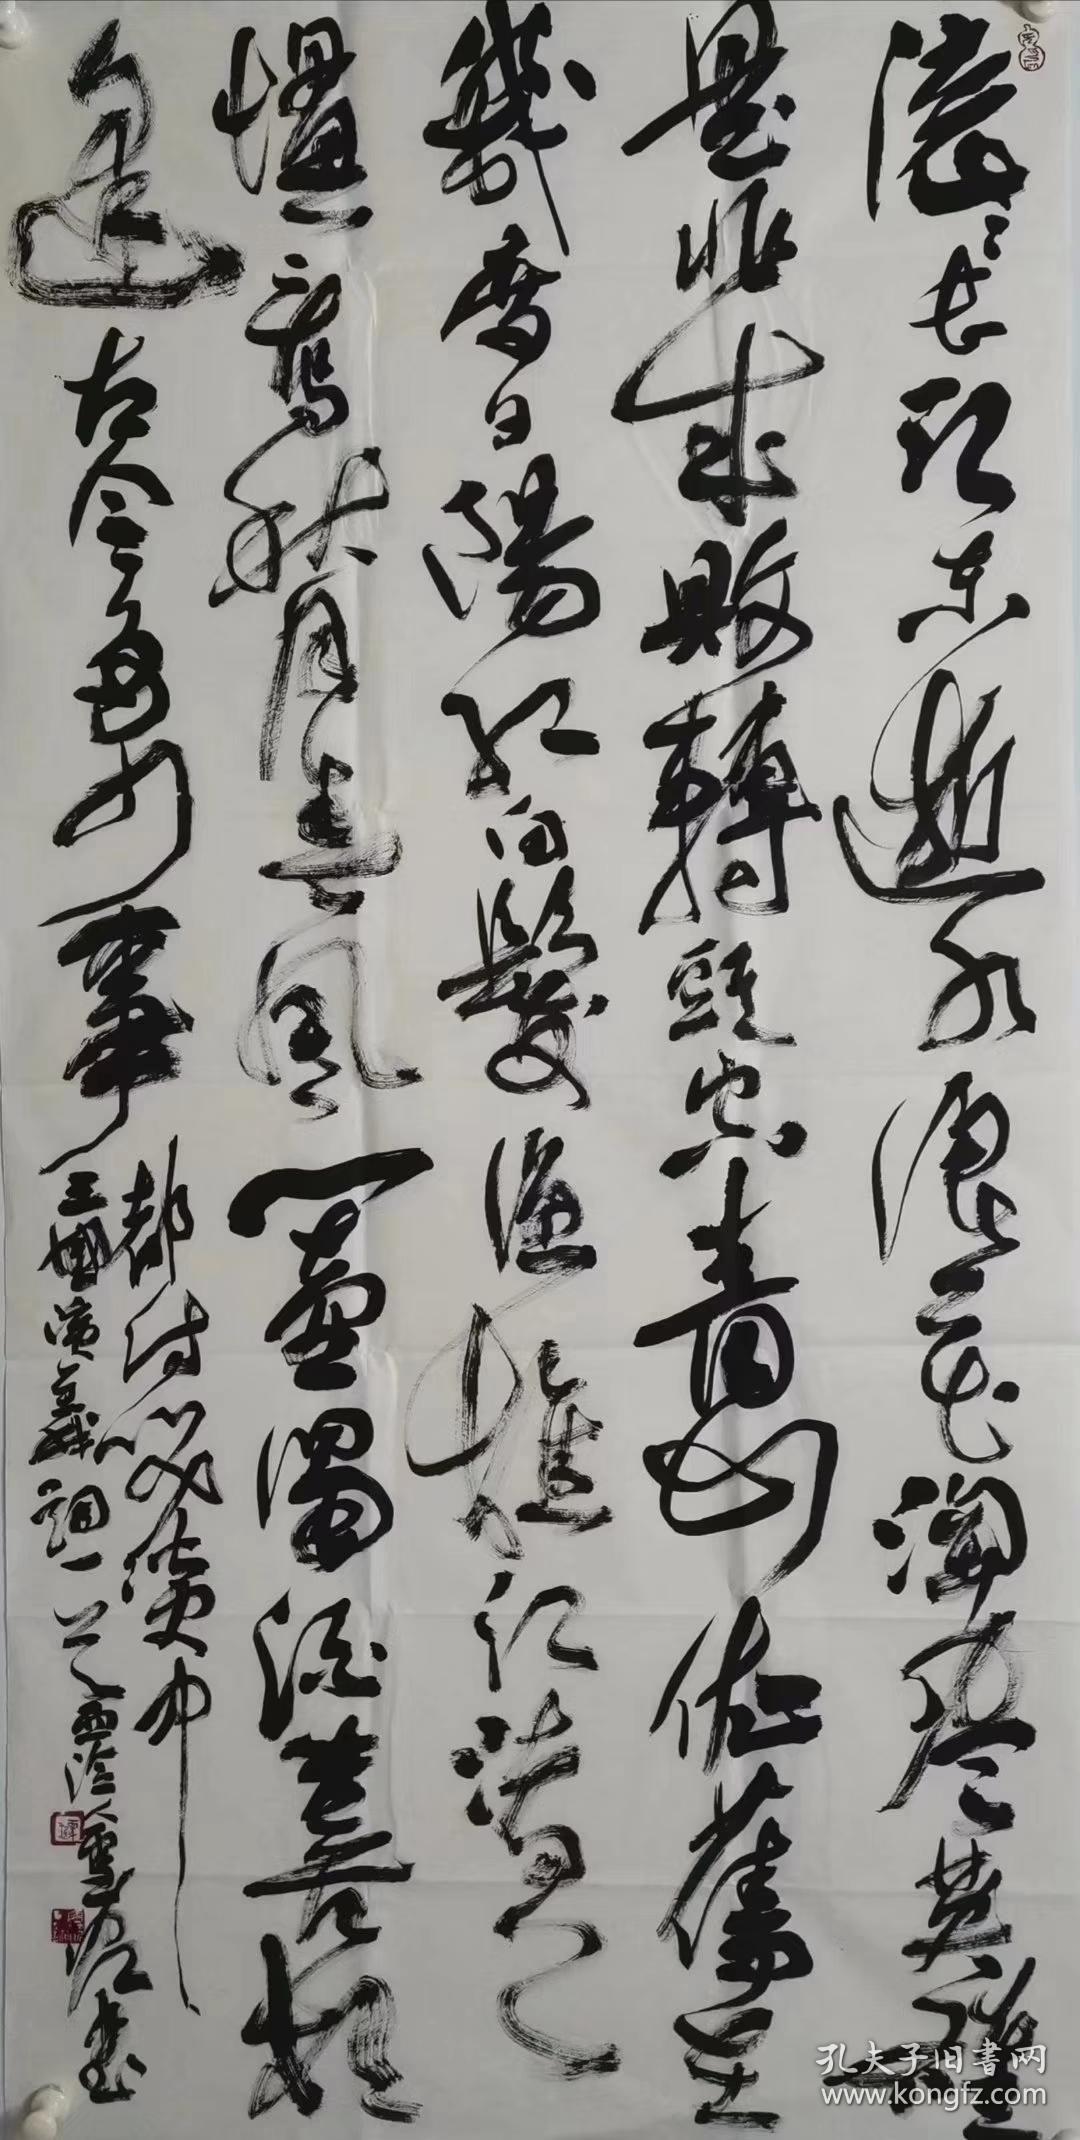 滚〻长江东逝水浪花淘尽英雄
是非成败转头空青山依旧在
几度夕阳红白发渔樵江渚上
惯看秋月春风一壶浊酒喜相
逢古今多少事
都付笑谈中
三国演义词一首
书
孔夫子旧书网
www.kongfz.com